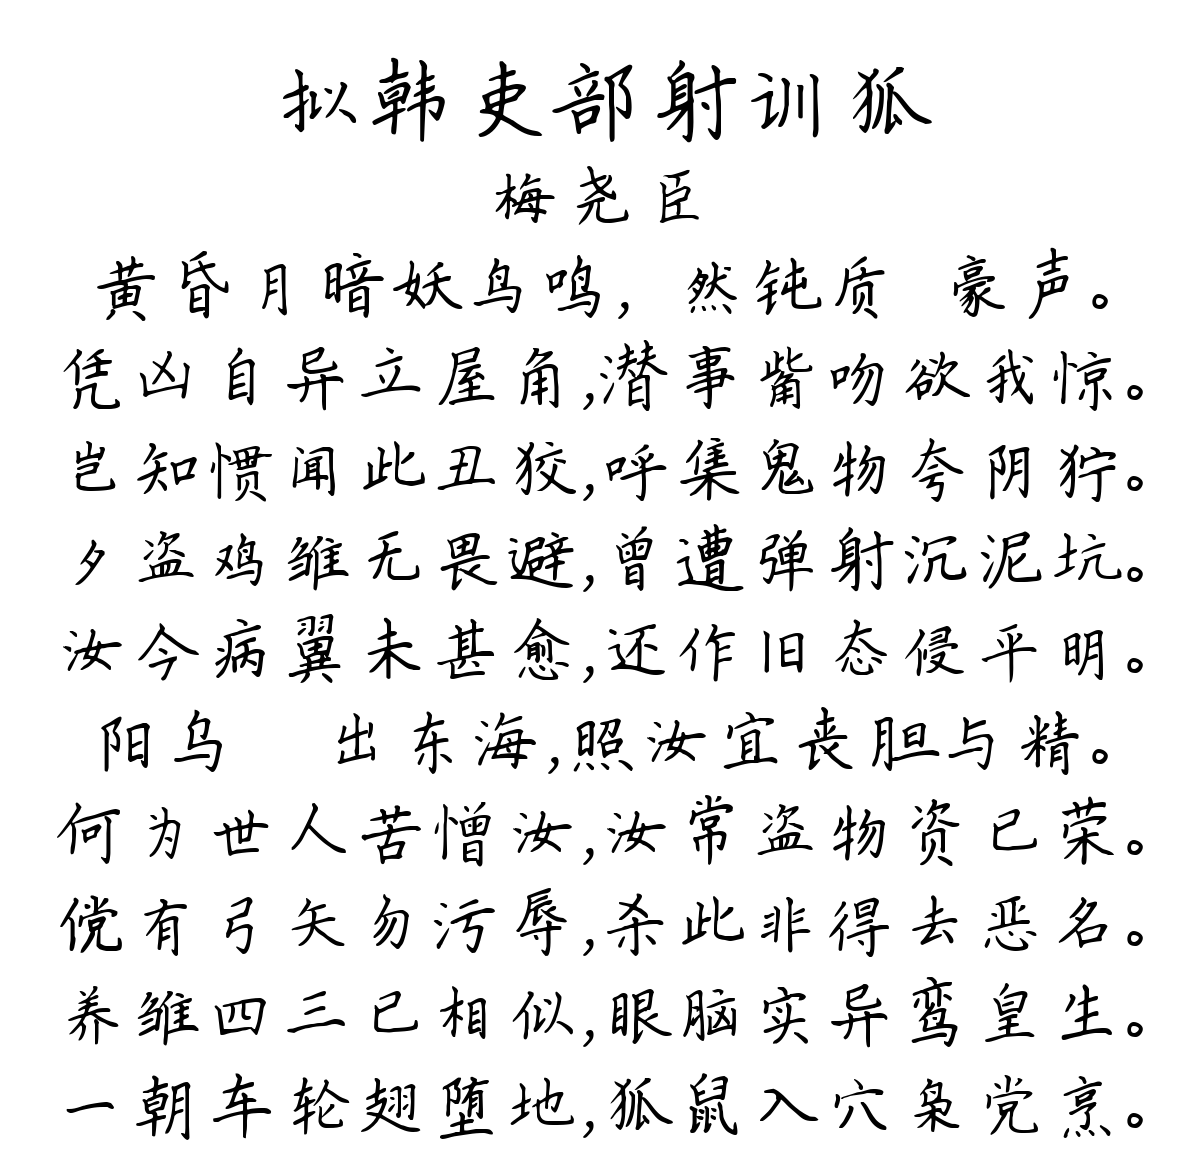 拟韩吏部射训狐
梅尧臣
黄昏月暗妖鸟鸣，然钝质 豪声。
凭凶自异立屋角,潜事觜吻欲我惊。
岂知惯闻此丑狡,呼集鬼物夸阴狞。
夕盗鸡雏无畏避,曾遭弹射沉泥坑。
汝今病翼未甚愈,还作旧态侵平明。
阳乌 出东海,照汝宜丧胆与精。
何为世人苦憎汝,汝常盗物资已荣。
傥有弓矢勿污辱,杀此非得去恶名。
养雏四三已相似,眼脑实异鸾皇生。
一朝车轮翅堕地,狐鼠入穴枭党烹。